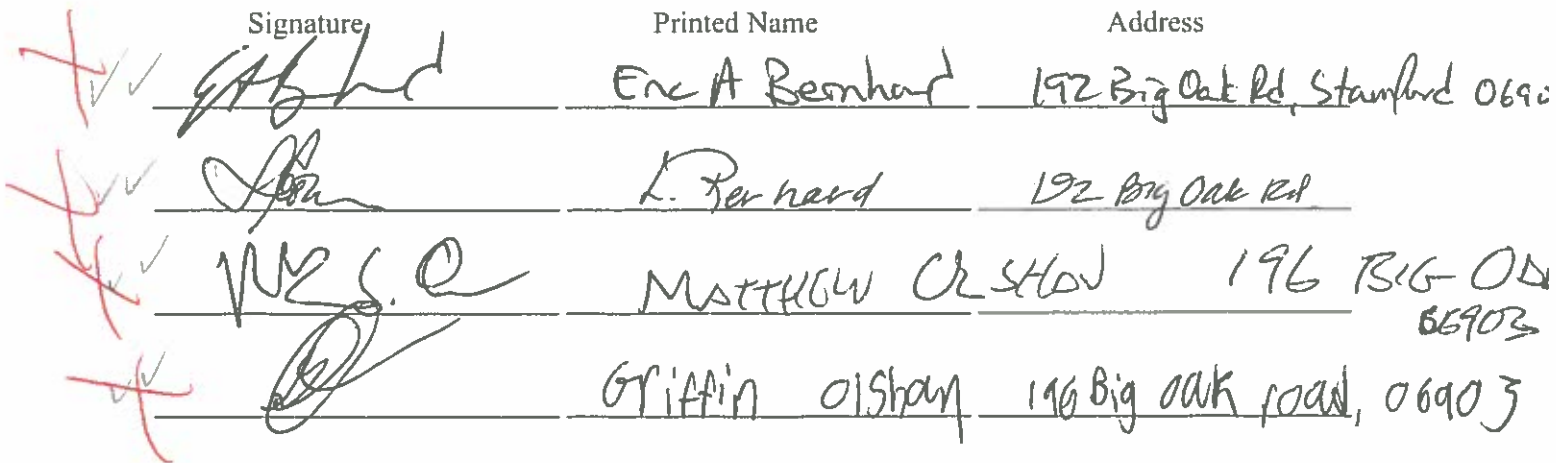 Signature Printed Name Address
Eric A Bernhard 192 Big Oak Rd, Stamford 0690
L. Bernhard 192 Big Oak Rd
MATTHEW OLSHAN 196 BIG OA
06903
Griffin Olshan 196 Big oak road, 06903